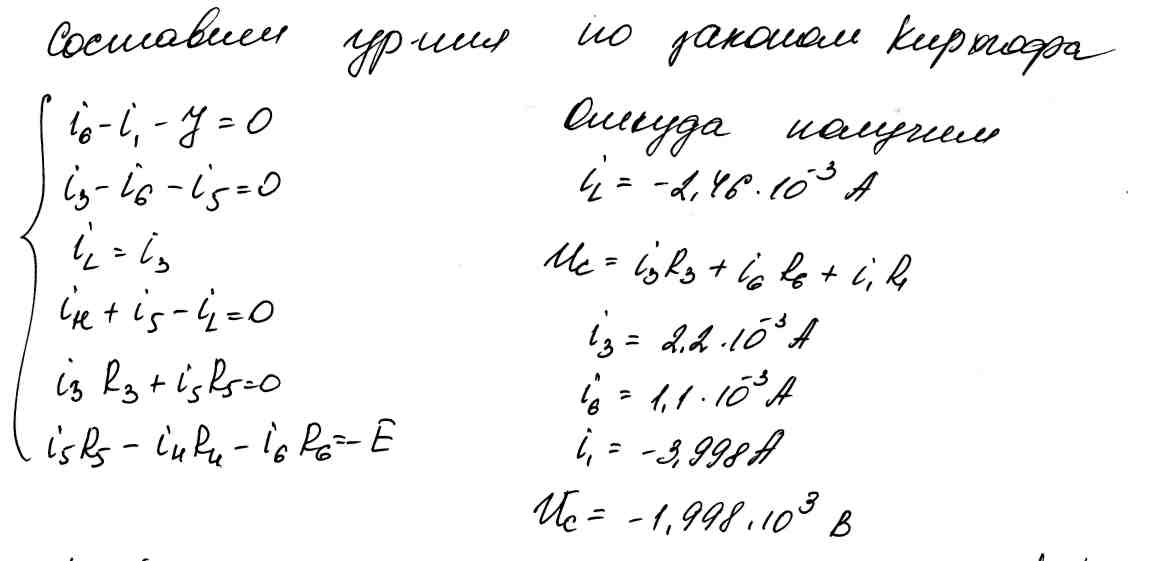 Составим ур-ния по законам Кирхгофа
i₆ - i₁ - J = 0
i₃ - i₆ - i₅ = 0
i_L = i₃
i₄ + i₅ - i_L = 0
i₃ R₃ + i₅ R₅ = 0
i₅ R₅ - i₄ R₄ - i₆ R₆ = - E
Откуда получим
i_L = -2,46 · 10⁻³ A
U_C = i₃ R₃ + i₆ R₆ + i₁ R₁
i₃ = 2,2 · 10⁻³ A
i₆ = 1,1 · 10⁻³ A
i₁ = -3,998 A
U_C = -1,998 · 10³ В